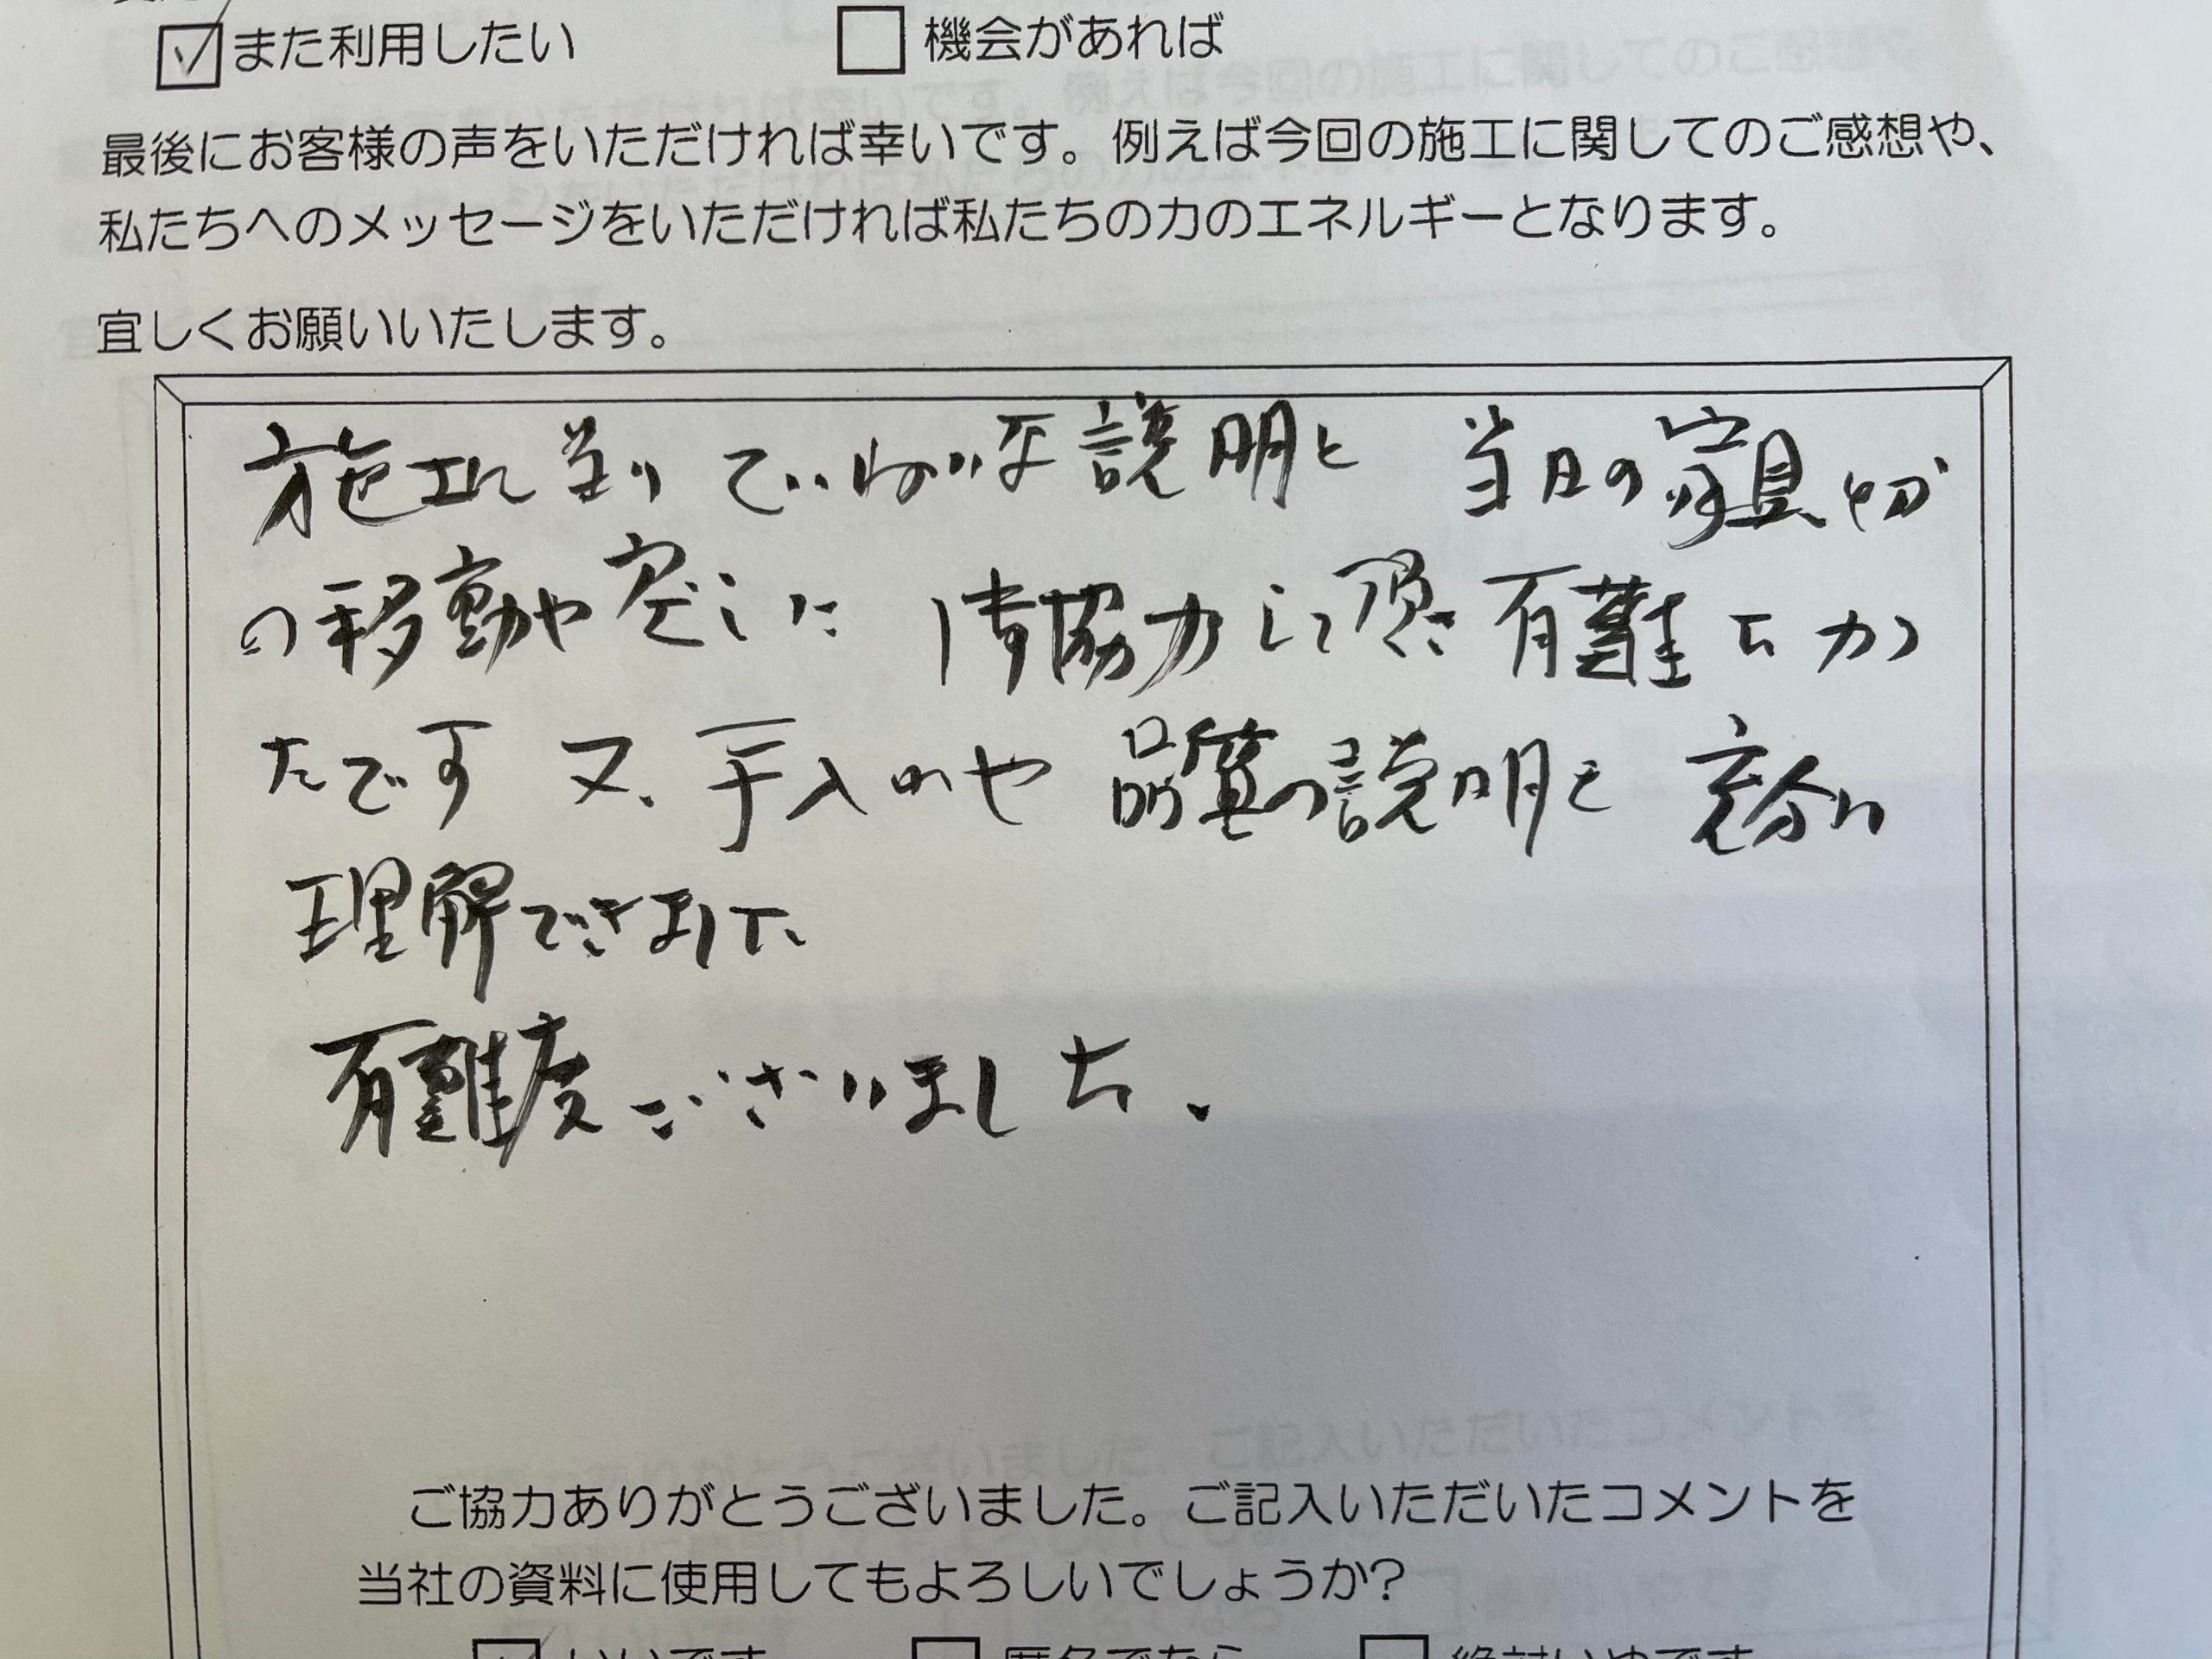 また利用したい 機会があれば
最後にお客様の声をいただければ幸いです。例えば今回の施工に関してのご感想や、
私たちへのメッセージをいただければ私たちの力のエネルギーとなります。
宜しくお願いいたします。
施工に当り ていねいな説明と 当日の家具
の移動や 協力して頂き有難たかっ
たです 又、手入れや 品質の説明も 充分に
理解できました
有難度ございました、
ご協力ありがとうございました。ご記入いただいたコメントを
当社の資料に使用してもよろしいでしょうか?
いいです 匿名でなら 絶対いやです